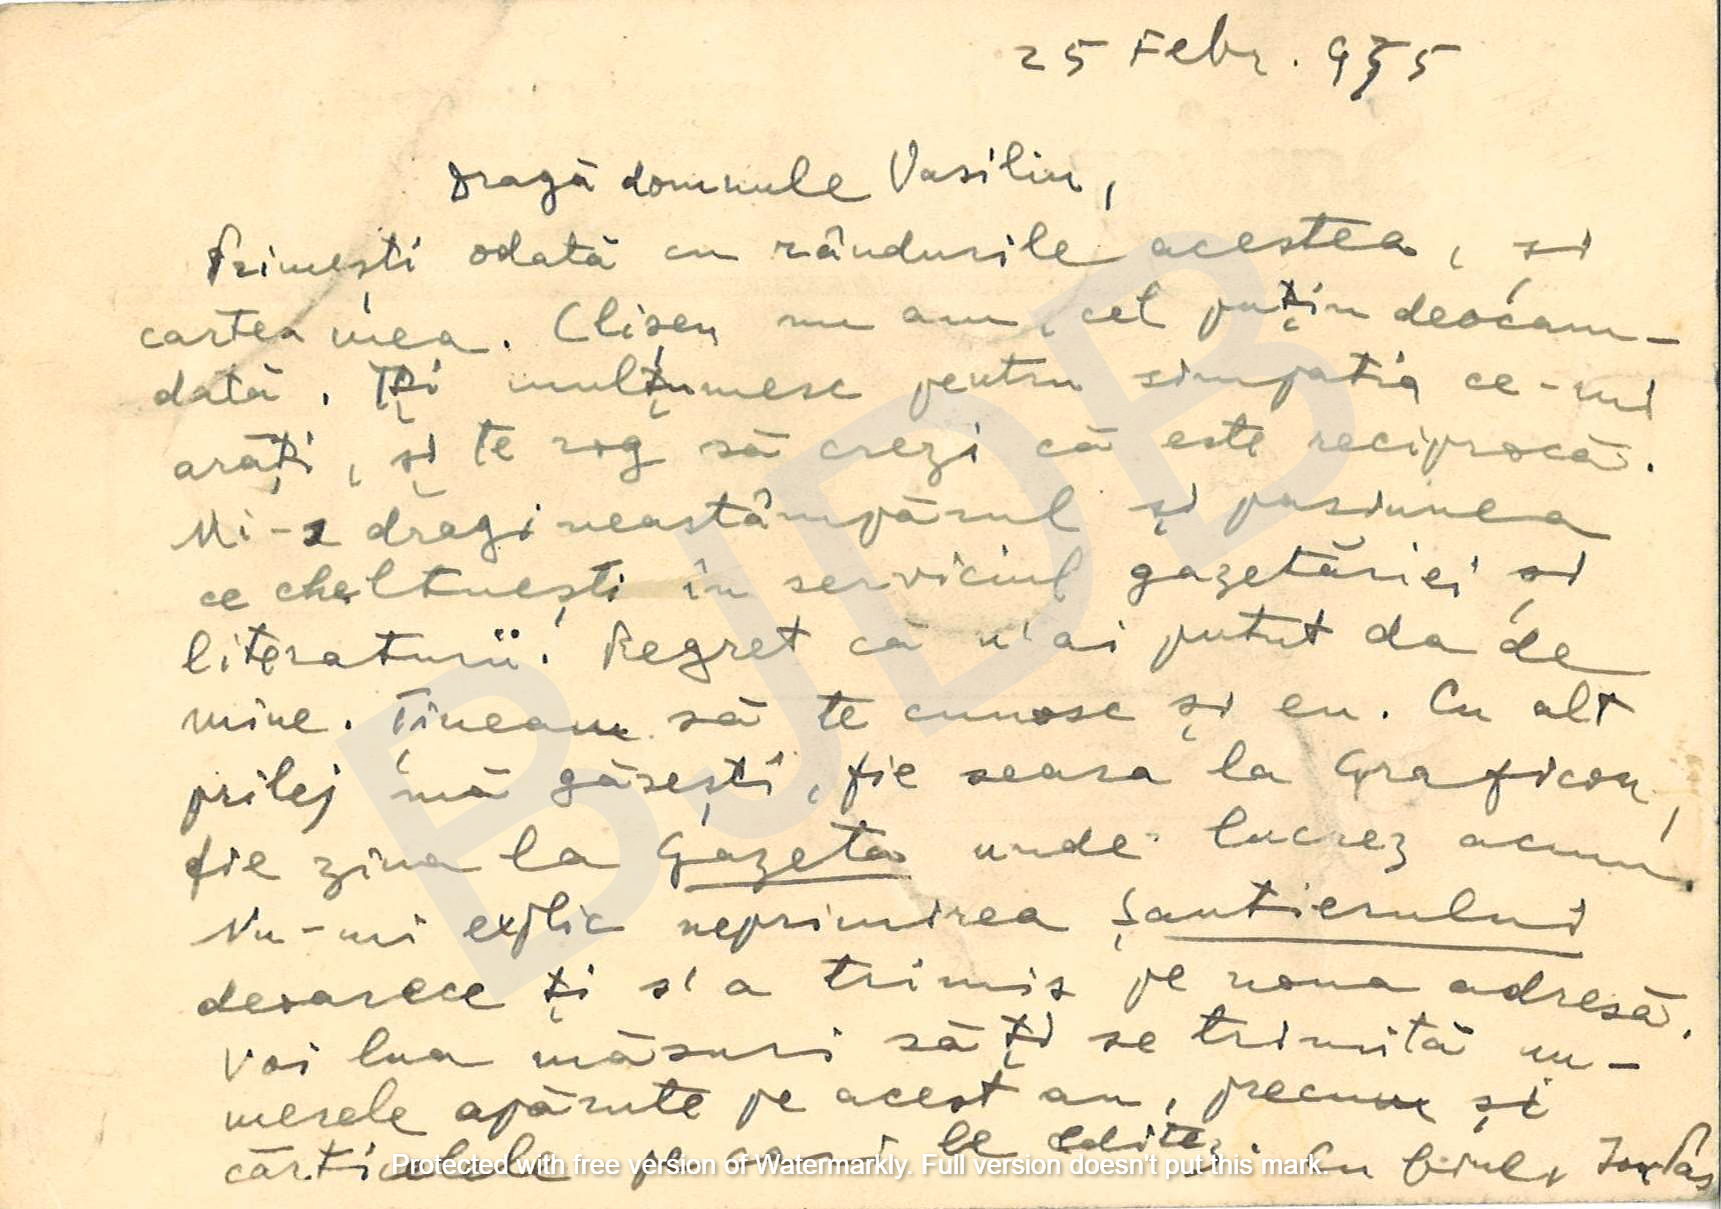 25 Febr. 935
Dragă domnule Vasiliu,
Primești odată cu rândurile acestea, și
cartea mea. Clișeu nu am, cel puțin deocam-
dată. Îți mulțumesc pentru simpatia ce-mi
arăți, și te rog să crezi că este reciprocă.
Mi-s dragi neastâmpărul și pasiunea
ce cheltuești în serviciul gazetăriei și
literaturii. Regret că n'ai putut da de
mine. Țineam să te cunosc și eu. Cu alt
prilej mă găsești, fie seara la Graficon,
fie ziua la Gazeta unde lucrez acum.
Nu-mi explic neprimirea Șantierului
deoarece ți s'a trimis pe noua adresă.
Voi lua măsuri să ți se trimită nu-
merele apărute pe acest an, precum și
cărticelele pe cari le editez. Cu bine,
BJDB
Protected with free version of Watermarkly. Full version doesn't put this mark.